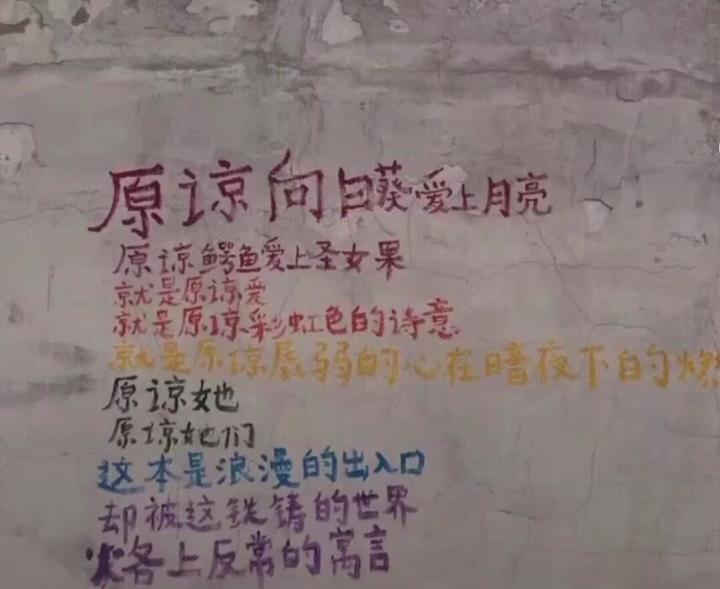 原谅向日葵爱上月亮
原谅鳄鱼爱上圣女果
就是原谅爱
就是原谅彩虹色的诗意
就是原谅孱弱的心在暗夜下的燃
原谅她
原谅她们
这本是浪漫的出入口
却被这铁铸的世界
烙上反常的寓言